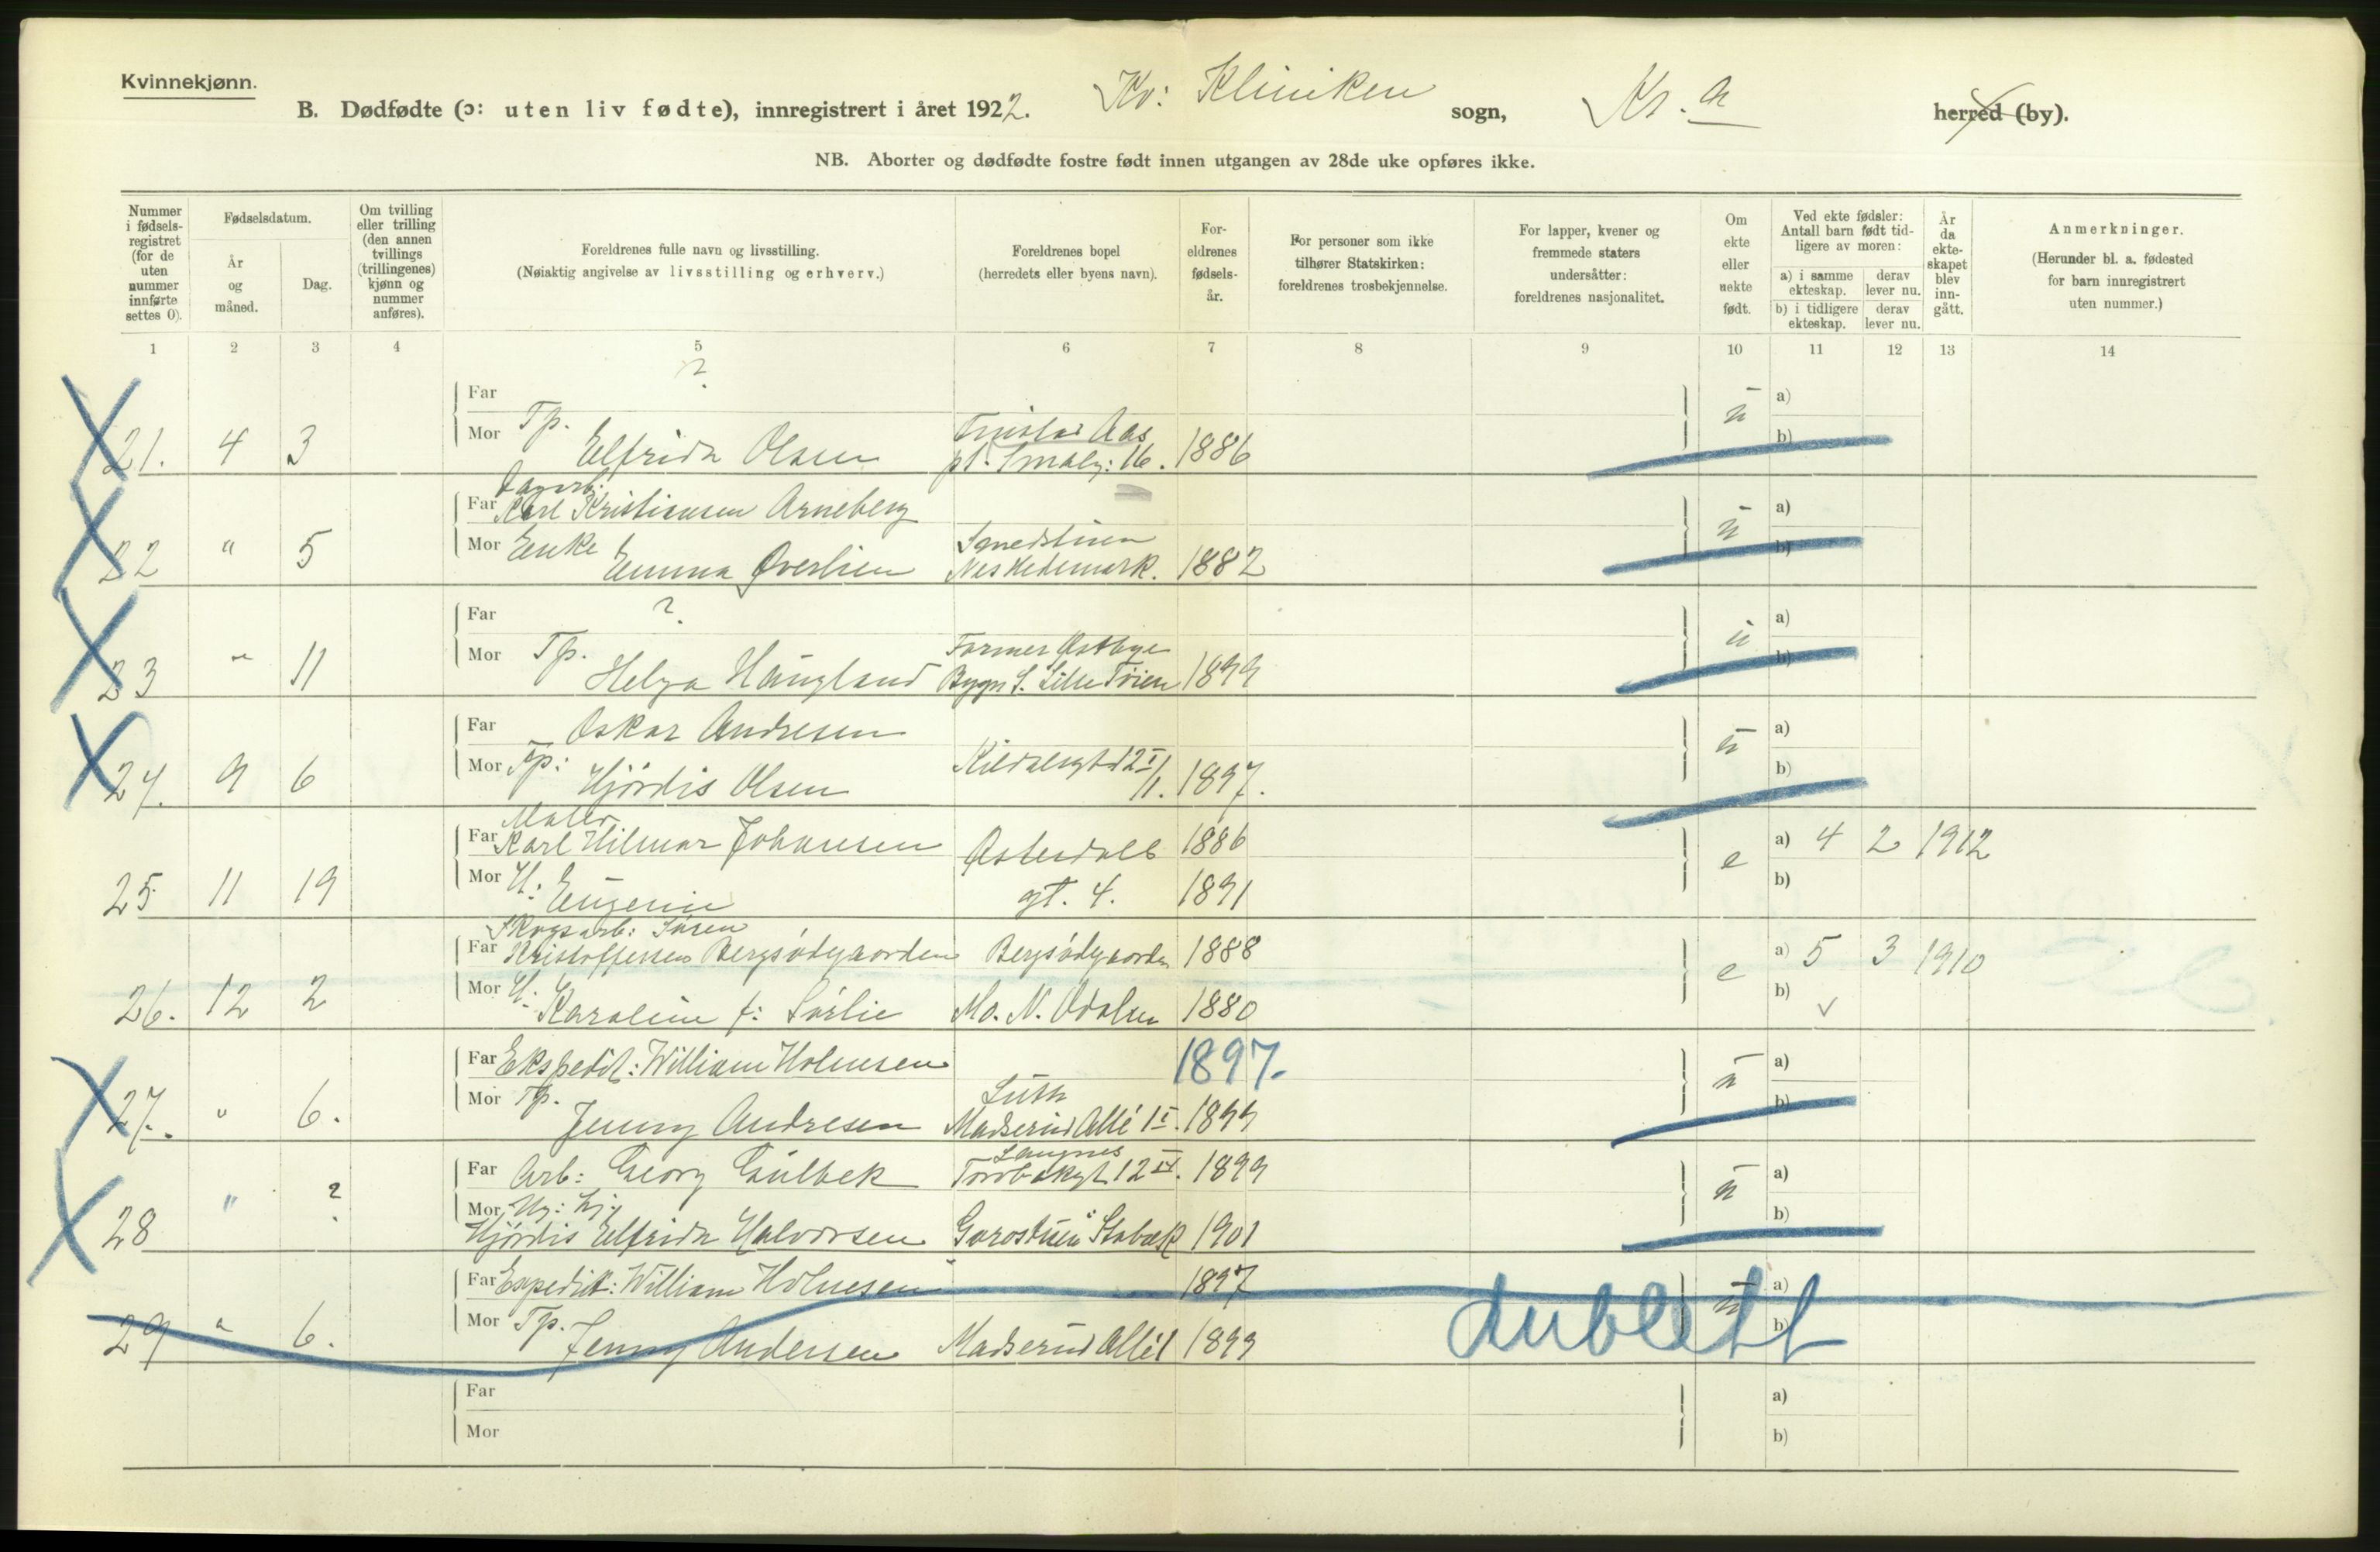 Kvinnekjønn.
B. Dødfødte (ɔ: uten liv fødte), innregistrert i året 1922. Kv: Kliniken sogn, Kr.a herred (by).
NB. Aborter og dødfødte fostre født innen utgangen av 28de uke opføres ikke.
Nummer i fødsels-registret (for de uten nummer innførte settes 0).
Fødselsdatum.
År og måned.
Dag.
Om tvilling eller trilling (den annen tvillings (trillingenes) kjønn og nummer anføres).
Foreldrenes fulle navn og livsstilling.
(Nøiaktig angivelse av livsstilling og erhverv.)
Foreldrenes bopel
(herredets eller byens navn).
For-eldrenes fødsels-år.
For personer som ikke tilhører Statskirken: foreldrenes trosbekjennelse.
For lapper, kvener og fremmede staters undersåtter: foreldrenes nasjonalitet.
Om ekte eller uekte født.
Ved ekte fødsler: Antall barn født tid-ligere av moren:
a) i samme ekteskap.
derav lever nu.
b) i tidligere ekteskap.
derav lever nu.
År da ekte-skapet blev inn-gått.
Anmerkninger.
(Herunder bl. a. fødested for barn innregistrert uten nummer.)
1 2 3 4 5 6 7 8 9 10 11 12 13 14
Far ?
a)
21. 4 3 Mor Tp. Elfrida Olsen 16. 1886 u b)
Far Karl Kristiansen Arneberg
a)
22 " 5 Mor Enke Emma Øverlien Smedstuen Nes Hedemark. 1882 u b)
Far ?
a)
23 " 11 Mor Tp. Helga Haugland Lille Tøien 1899 u b)
Far Oskar Andresen
a)
24. 9 6 Mor Tp: Hjördis Olsen 1897. u b)
Maler
Far Karl Hilmar Johansen Østerdals 1886 a) 4 2 1912
25 11 19 Mor H. Eugenie gt. 4. 1891 e b)
Skogsarb: Søren
Far Kristoffersen Bergsødegaarden Bergsødegaarden 1888 a) 5 3 1910
26. 12 2 Mor H. Karoline f: Sørlie Mo. N. Odalen 1880 e b)
Far Ekspedit: William Holmesen 1897. a)
27. " 6. Mor Tp. Jenny Andresen Madserud Allé 1 I. 1899 u b)
Far Arb: Georg Gulbek 12 1899 a)
28 " ? Mor Hjördis Elfrida Halvorsen Stabæk 1901 u b)
Far Expedit: William Holmesen 1897 a)
29 " 6. Mor Tp. Jenny Andersen Madserud Allé 1 1899 u b)
dublett
Far a)
Mor b)